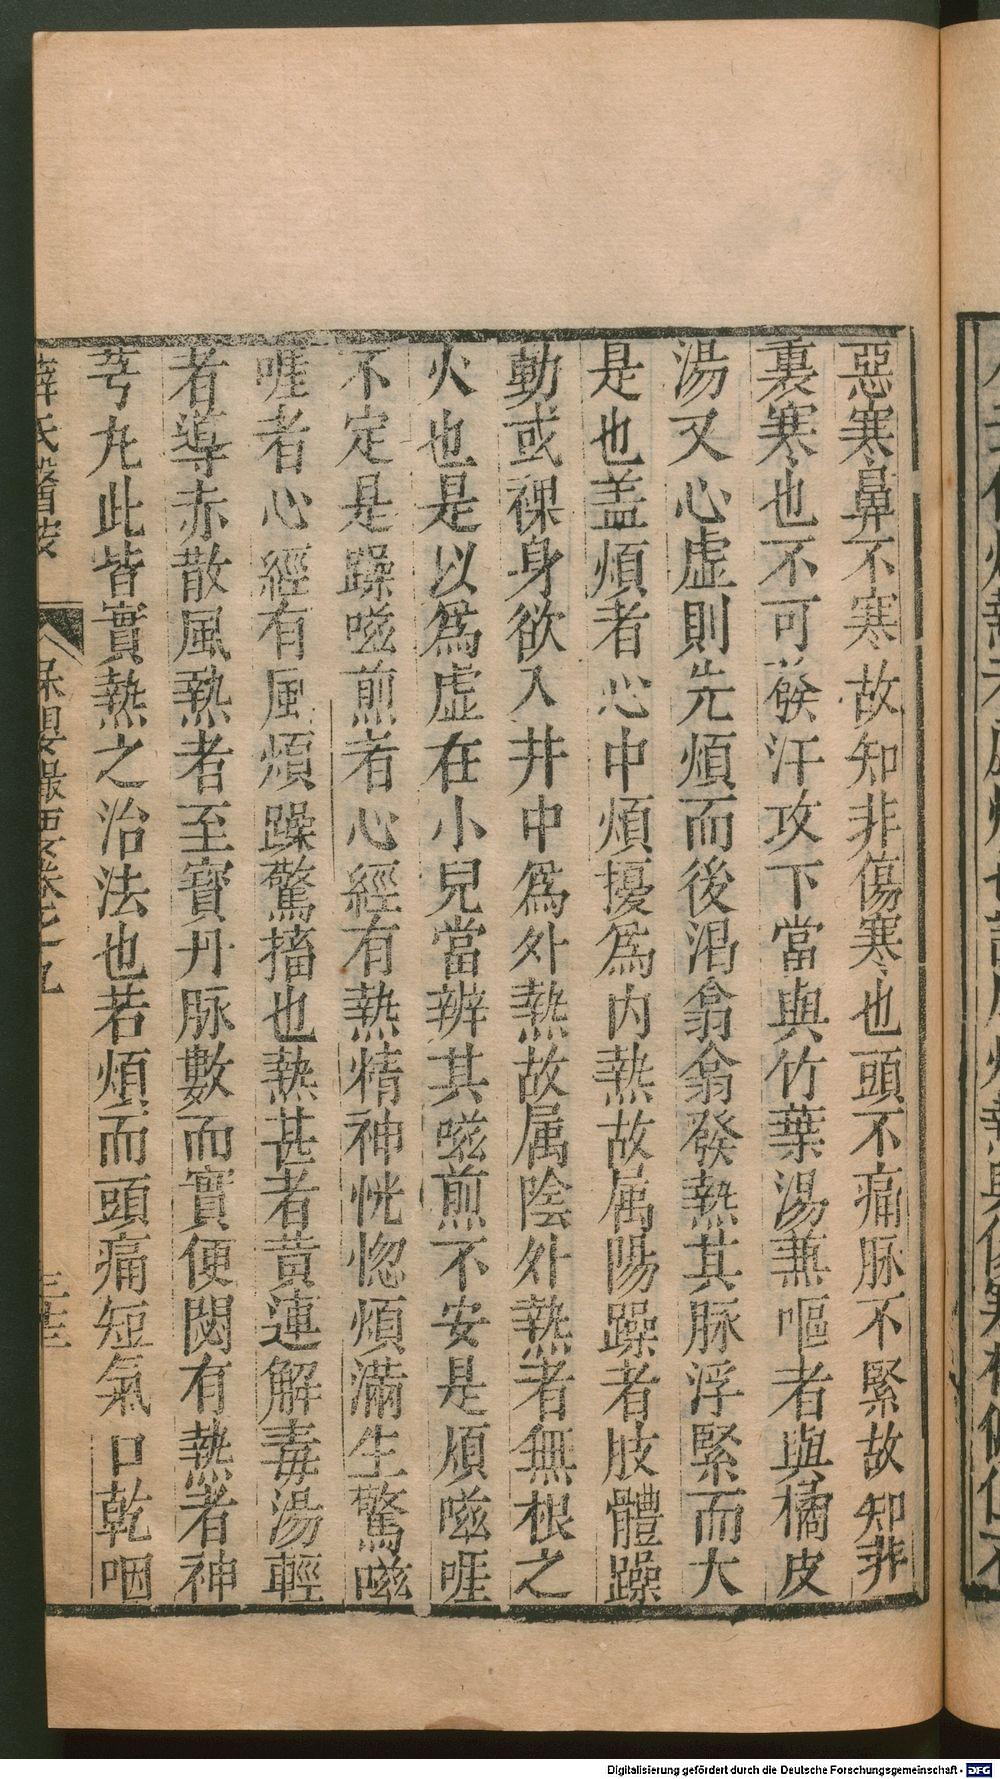 惡寒鼻不寒故知非傷寒也頭不痛脉不緊故知非
裏寒也不可發汗攻下當與竹葉湯蒸嘔者與橘皮
湯又心虛則先煩而後渴翕翕發熱其脉浮緊而大
是也盖煩者心中煩擾爲内熱故属陽躁者肢體躁
動或裸身欲入井中爲外熱故属陰外熱者無根之
火也是以爲虛在小兒當辨其嗞煎不安是煩嗞啀
不定是躁嗞煎者心經有熱精神恍惚煩滿生驚嗞
啀者心經有風煩躁驚搐也熱甚者黄連解毒湯輕
者導赤散風熱者至寳丹脉數而實便閟有熱者神
芎丸此皆實熱之治法也若煩而頭痛短氣口乾咽
薛氏醫按 保嬰撮要卷之九
Digitalisierung gefördert durch die Deutsche Forschungsgemeinschaft - DFG